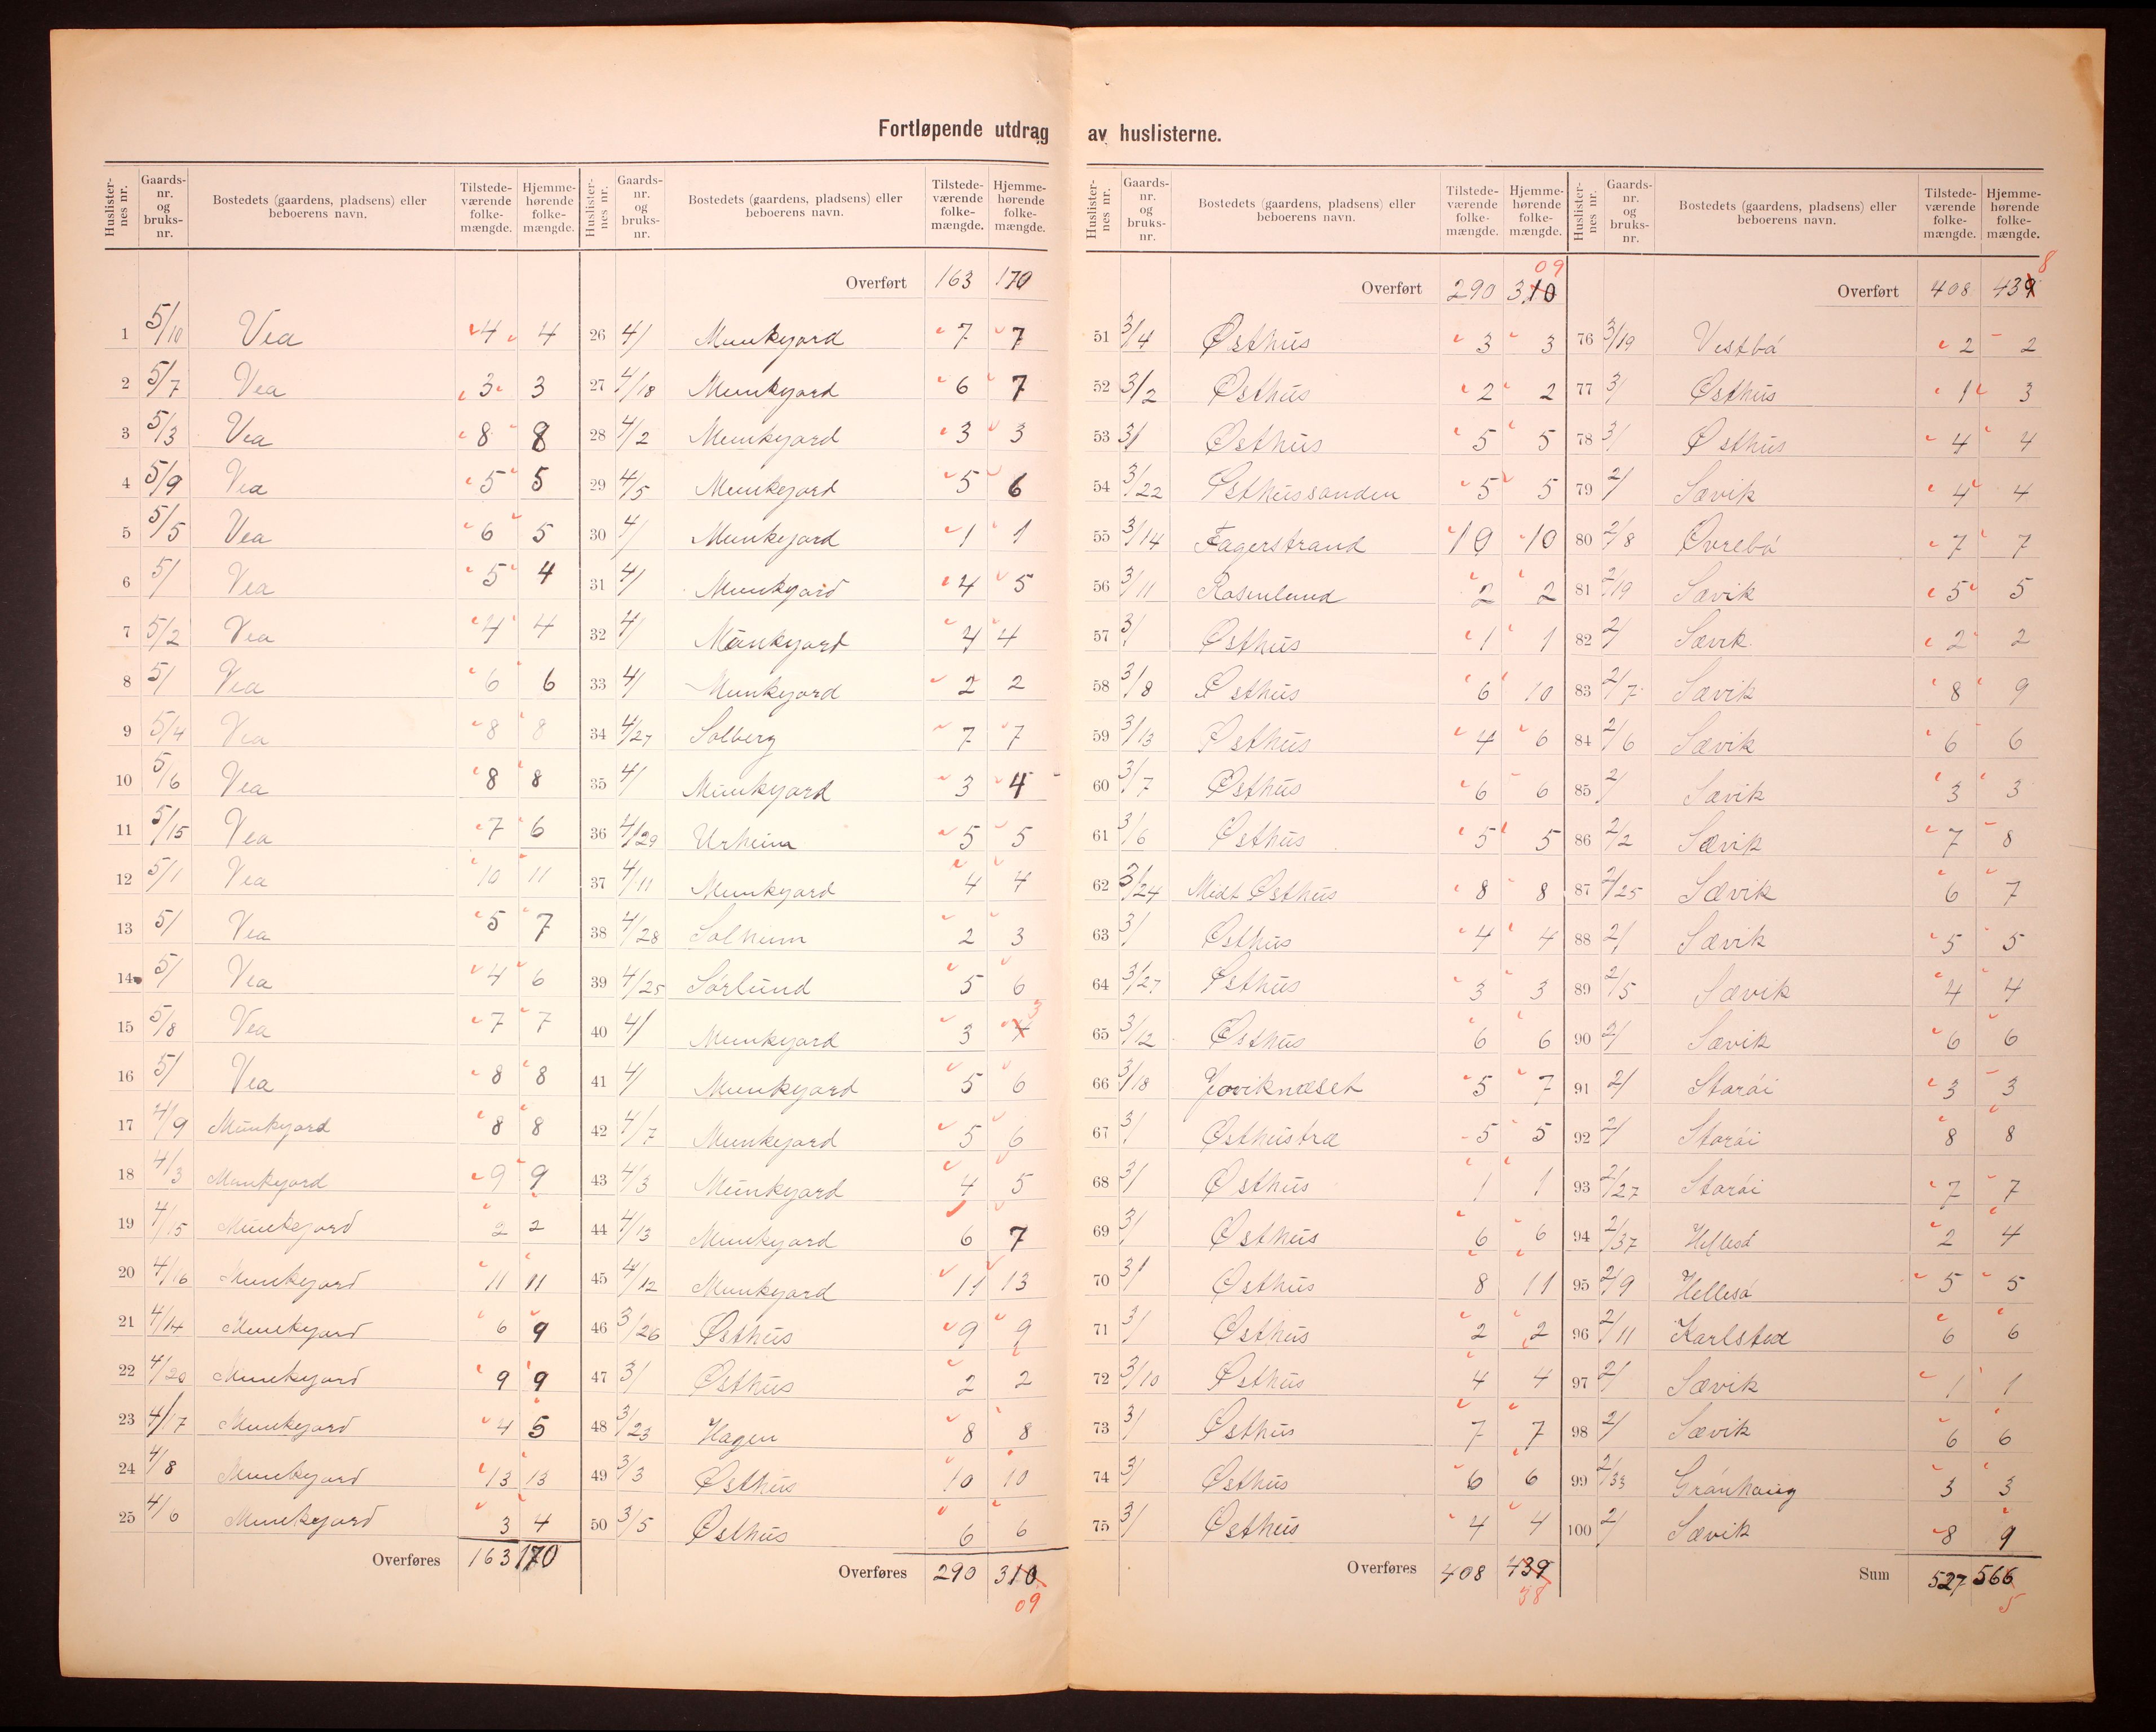 Fortløpende utdrag av huslisterne.
Huslister-nes nr. Gaards-nr. og bruks-nr. Bostedets (gaardens, pladsens) eller beboerens navn. Tilstede-værende folke-mængde. Hjemme-hørende folke-mængde.
1 5/10 Vea 4 4
2 5/7 Vea 3 3
3 5/3 Vea 8 8
4 5/9 Vea 5 5
5 5/5 Vea 6 5
6 5/ Vea 5 4
7 5/2 Vea 4 4
8 5/ Vea 6 6
9 5/4 Vea 8 8
10 5/6 Vea 8 8
11 5/15 Vea 7 6
12 5/1 Vea 10 11
13 5/ Vea 5 7
14 5/ Vea 4 6
15 5/8 Vea 7 7
16 5/ Vea 8 8
17 4/9 Munkejord 8 8
18 4/3 Munkejord 9 9
19 4/15 Munkejord 2 2
20 4/16 Munkejord 11 11
21 4/14 Munkejord 6 9
22 4/20 Munkejord 9 9
23 4/17 Munkejord 4 5
24 4/8 Munkejord 13 13
25 4/6 Munkejord 3 4
Overføres 163 170
Huslister-nes nr. Gaards-nr. og bruks-nr. Bostedets (gaardens, pladsens) eller beboerens navn. Tilstede-værende folke-mængde. Hjemme-hørende folke-mængde.
Overført 163 170
26 4/ Munkejord 7 7
27 4/18 Munkejord 6 7
28 4/2 Munkejord 3 3
29 4/5 Munkejord 5 6
30 4/ Munkejord 1 1
31 4/ Munkejord 4 5
32 4/ Munkejord 4 4
33 4/ Munkejord 2 2
34 4/27 Solberg 7 7
35 4/ Munkejord 3 4
36 4/29 Urheim 5 5
37 4/11 Munkejord 4 4
38 4/28 Solheim 2 3
39 4/25 Sørlund 5 6
40 4/ Munkejord 3 4 3
41 4/ Munkejord 5 6
42 4/7 Munkejord 5 6
43 4/3 Munkejord 4 5
44 4/13 Munkejord 6 7
45 4/12 Munkejord 11 13
46 3/26 Østhus 9 9
47 3/ Østhus 2 2
48 3/23 Hagen 8 8
49 3/3 Østhus 10 10
50 3/5 Østhus 6 6
Overføres 290 310
09
Huslister-nes nr. Gaards-nr. og bruks-nr. Bostedets (gaardens, pladsens) eller beboerens navn. Tilstede-værende folke-mængde. Hjemme-hørende folke-mængde.
09
Overført 290 310
51 3/4 Østhus 3 3
52 3/2 Østhus 2 2
53 3/ Østhus 5 5
54 3/22 Østhussanden 5 5
55 3/14 Fagerstrand 10 10
56 3/11 Rosenlund 2 2
57 3/ Østhus 1 1
58 3/8 Østhus 6 10
59 3/13 Østhus 4 6
60 3/7 Østhus 6 6
61 3/6 Østhus 5 5
62 3/24 Midt Østhus 8 8
63 3/ Østhus 4 4
64 3/27 Østhus 3 3
65 3/12 Østhus 6 6
66 3/18 5 7
67 3/ Østhustræ 5 5
68 3/ Østhus 1 1
69 3/ Østhus 6 6
70 3/ Østhus 8 11
71 3/ Østhus 2 2
72 3/10 Østhus 4 4
73 3/ Østhus 7 7
74 3/ Østhus 6 6
75 3/ Østhus 4 4
Overføres 408 439
38
Huslister-nes nr. Gaards-nr. og bruks-nr. Bostedets (gaardens, pladsens) eller beboerens navn. Tilstede-værende folke-mængde. Hjemme-hørende folke-mængde.
8
Overført 408 439
76 3/19 Vestbö 2 2
77 3/ Østhus 1 3
78 3/ Østhus 4 4
79 2/ Sævik 4 4
80 2/8 Øvrebö 7 7
81 2/19 Sævik 5 5
82 2/ Sævik 2 2
83 2/7 Sævik 8 9
84 2/6 Sævik 6 6
85 2/ Sævik 3 3
86 2/2 Sævik 7 8
87 2/25 Sævik 6 7
88 2/ Sævik 5 5
89 2/5 Sævik 4 4
90 2/ Sævik 6 6
91 2/ Storöi 3 3
92 2/ Storöi 8 8
93 2/27 Storöi 7 7
94 2/37 Hellesö 2 4
95 2/9 Hellesö 5 5
96 2/11 Karlsted 6 6
97 2/ Sævik 1 1
98 2/ Sævik 6 6
99 2/33 Grönhaug 3 3
100 2/ Sævik 8 9
Sum 527 566
5